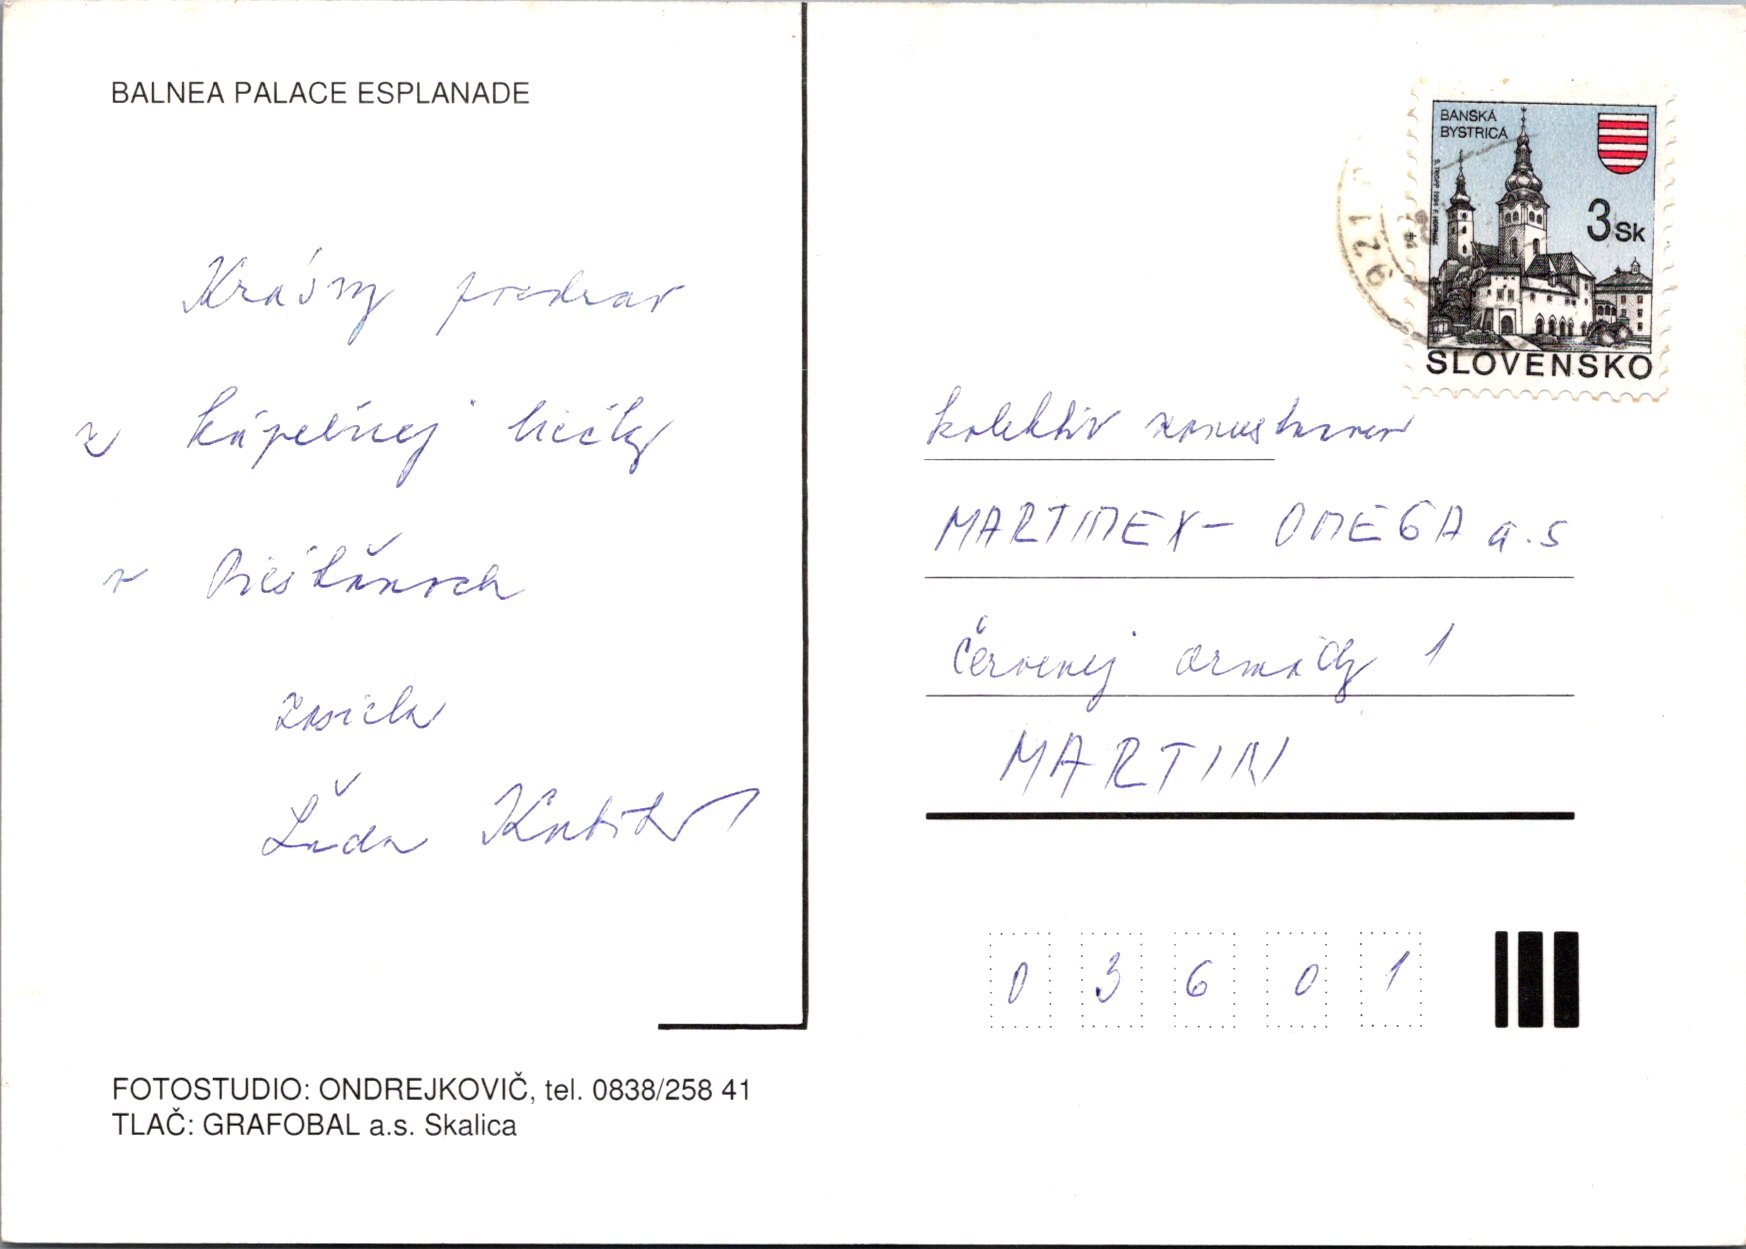 BALNEA PALACE ESPLANADE
Krásny pozdrav
z kúpeľnej liečby
v Piešťanoch
zasiela
Ľuda
FOTOSTUDIO: ONDREJKOVIČ, tel. 0838/258 41
TLAČ: GRAFOBAL a.s. Skalica
BANSKÁ
BYSTRICA
3 Sk
SLOVENSKO
921
kolektív
MARTIMEX - OMEGA a.s
Červenej armády 1
MARTIN
03601